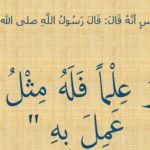 سٍ أَنَّهُ قَالَ: قَالَ رَسُولُ اللَّهِ صلى الله
عِلْماً فَلَهُ مِثْلُ
عَمِلَ بِهِ "